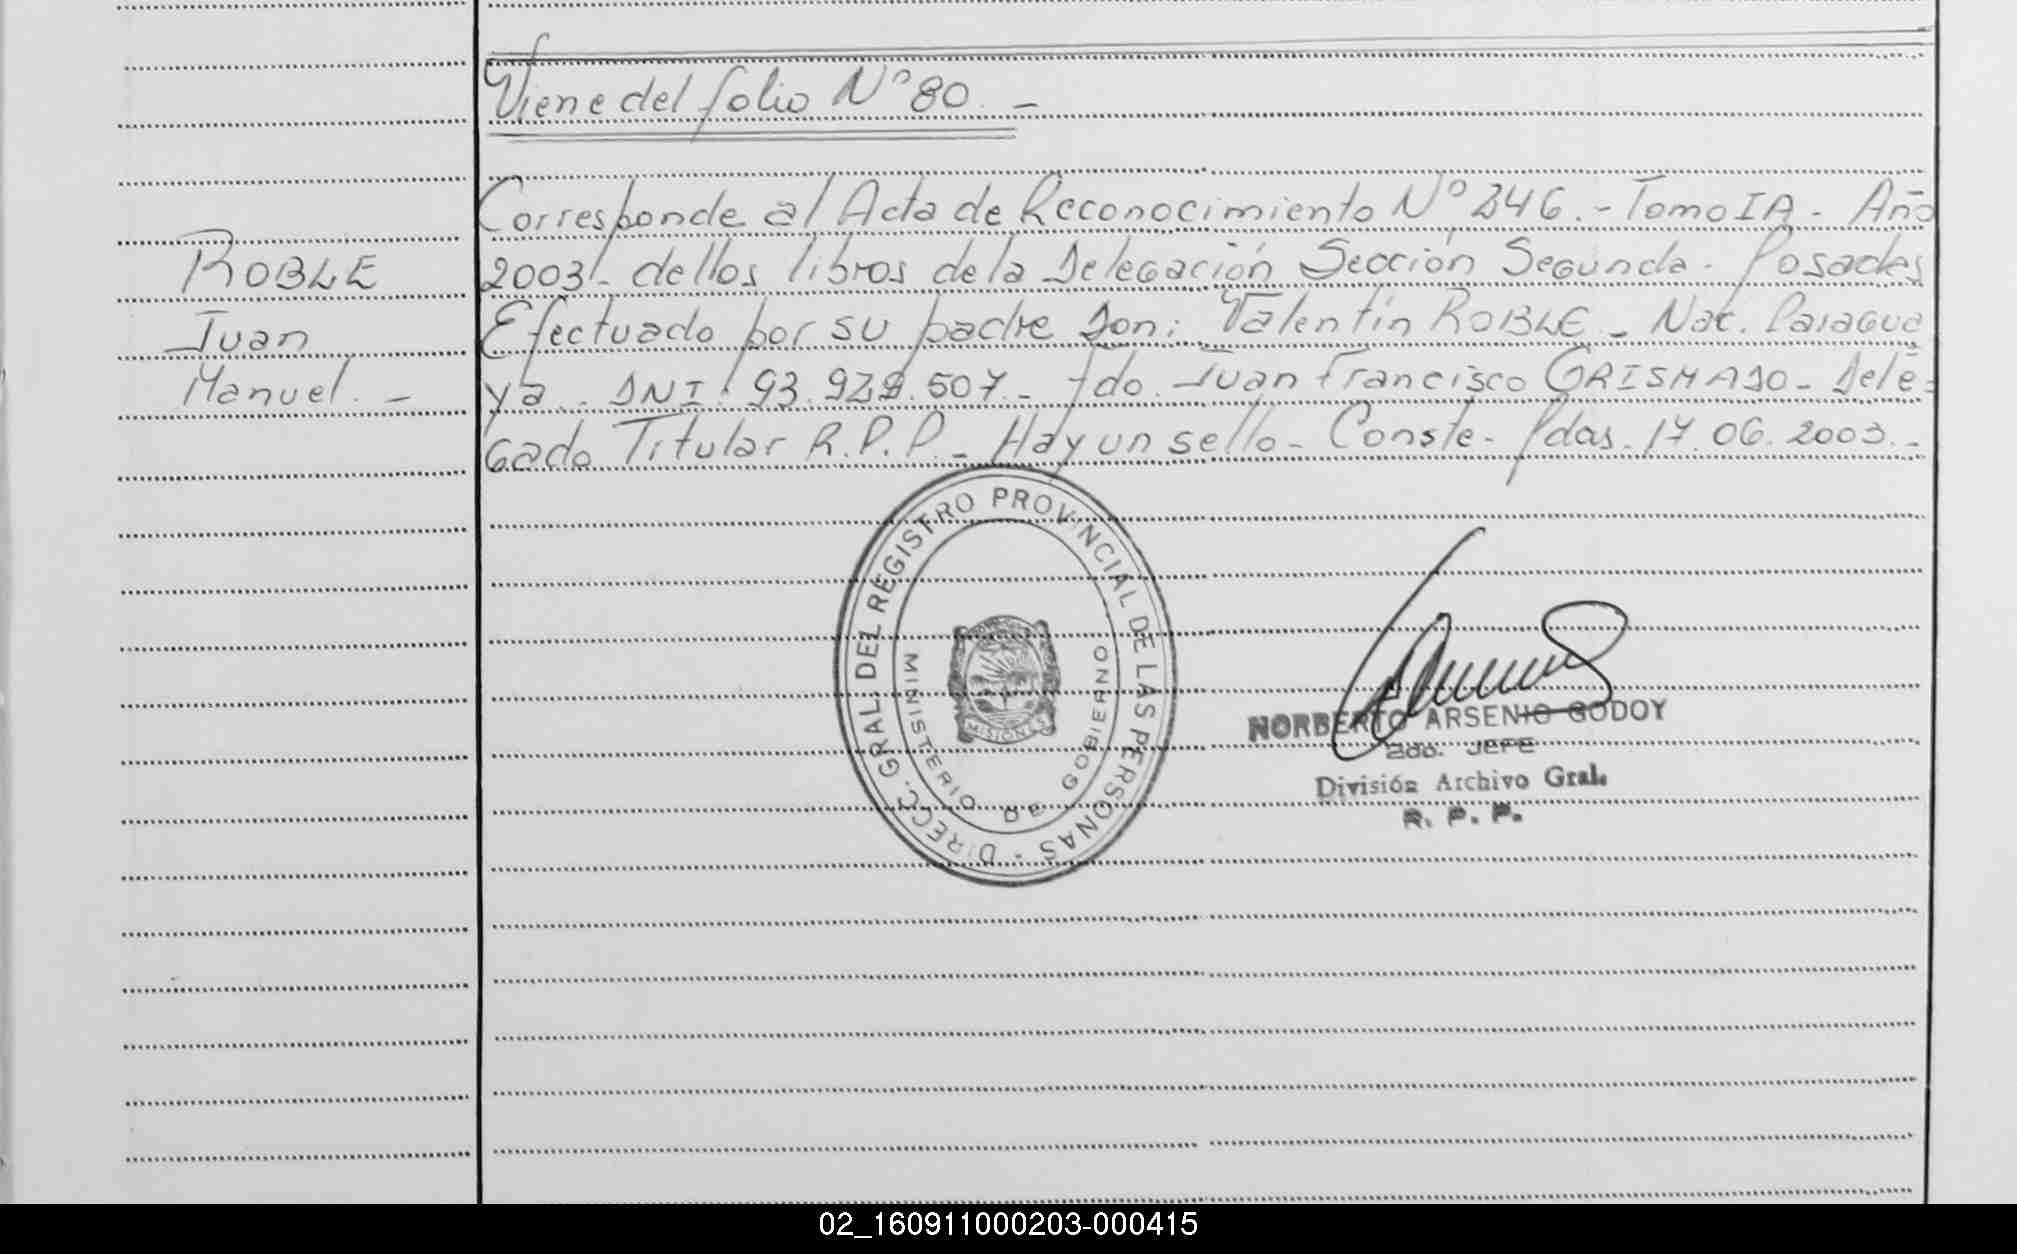 Viene del folio Nº 80. -
Corresponde al Acta de Reconocimiento Nº 346. - Tomo IA - Año
ROBLE
2003 - dellos libros de la Delegación Sección Segunda - Posadas
Juan
Efectuado por su padre Don: Valentín ROBLE - Nac. Paragua
Manuel. -
ya. DNI: 93.939.507. - fdo. Juan Francisco GRISMADO - Dele=
gado Titular R.P.P. - Hay un sello - Conste - Pdas. 17.06.2003. -
DIRECC. GRAL. DEL REGISTRO PROVINCIAL DE LAS PERSONAS -
MINISTERIO DE GOBIERNO
MISIONES
NORBERTO ARSENIO GODOY
2do. JEFE
División Archivo Gral.
R. P. P.
02_160911000203-000415